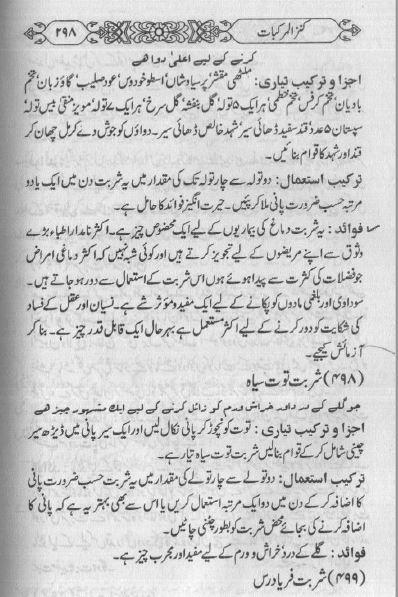 ۲۹۸ کنز المرکبات
کرنے کے لیے اعلیٰ دوا ہے
اجزا و ترکیب تیاری: ملٹھی مقشر پرسیاوشاں اسطوخودوس عود صلیب گاؤزبان تخم
بادیان تخم کرفس تخم خطمی ہر ایک ۵ تولہ گل بنفشہ گل سرخ ہر ایک ۷ تولہ مویز منقیٰ بیس تولہ
سپستان ۵۰ عدد قند سفید ڈھائی سیر شہد خالص ڈھائی سیر۔ دواؤں کو جوش دے کر مل چھان کر
قند اور شہد کا قوام بنائیں۔
ترکیب استعمال: دو تولہ سے چار تولہ تک کی مقدار میں یہ شربت دن میں ایک یا دو
مرتبہ حسب ضرورت پانی ملا کر پیں۔ حیرت انگیز فوائد کا حامل ہے۔
فوائد: یہ شربت دماغ کی بیماریوں کے لیے ایک مخصوص چیز ہے۔ اکثر نامدار اطباء بڑے
وثوق سے اپنے مریضوں کے لیے تجویز کرتے ہیں اور کوئی شبہ نہیں کہ اکثر دماغی امراض
جو فضلات کی کثرت سے پیدا ہوئے ہوں اس شربت کے استعمال سے دور ہو جاتے ہیں۔
سوداوی اور بلغمی مادوں کو پکانے کے لیے ایک مفید و موثر شے ہے۔ نسیان اور عقل کے فساد
کی شکایت کو دور کرنے کے لیے اکثر مستعمل ہے بہرحال ایک قابل قدر چیز ہے۔ بنا کر
آزمائش کیجیے۔
(۴۹۸) شربت توت سیاہ
جو گلے کے درد اور خراش و ورم کو زائل کرنے کے لیے ایک مشہور چیز ہے
اجزا و ترکیب تیاری: توت کو نچوڑ کر پانی نکال لیں اور ایک سیر پانی میں ڈیڑھ سیر
چینی شامل کر کے قوام بنائیں شربت توت سیاہ تیار ہے۔
ترکیب استعمال: دو تولے سے چار تولے کی مقدار میں یہ شربت حسب ضرورت پانی
کا اضافہ کر کے دن میں دو ایک مرتبہ استعمال کریں یا اس سے بھی بہتر یہ ہے کہ پانی کا
اضافہ کرنے کی بجائے محض شربت کو بطور چٹنی چاٹیں۔
فوائد: گلے کے درد خراش و ورم کے لیے مفید اور مجرب چیز ہے۔
(۴۹۹) شربت فریادرس